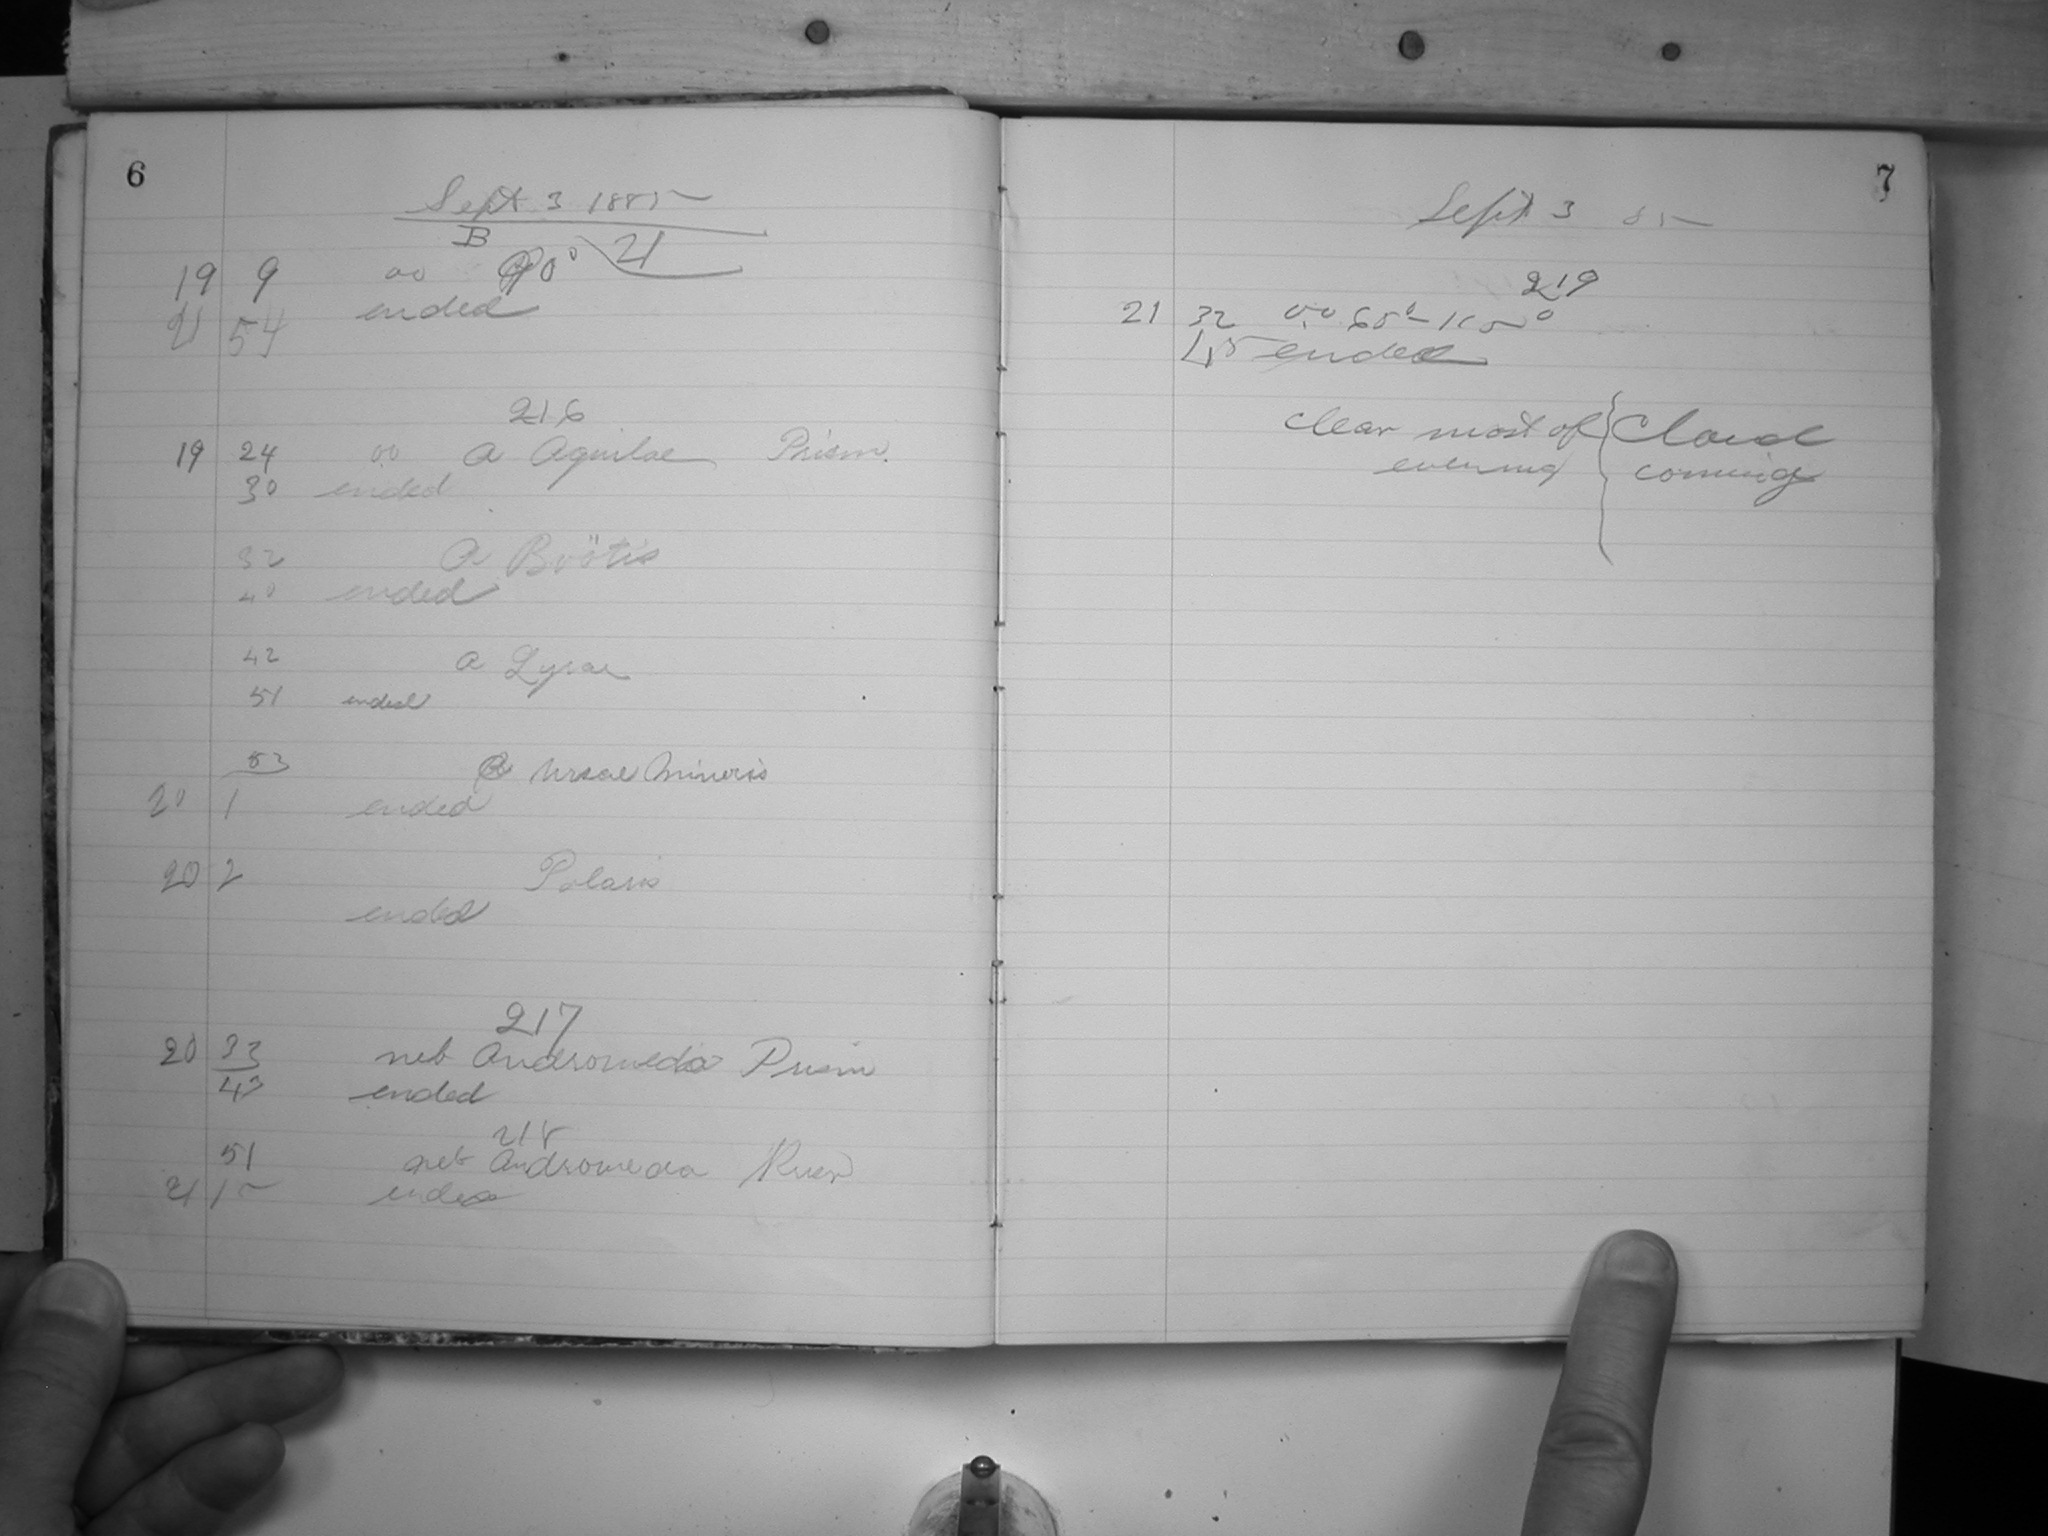 6
Sept 3 1885
B 21
19 9 00 90°
21 54 ended
216
19 24 00 a Aquilae Prism.
30 ended
32 a Boötis
40 ended
42 a Lyrae
51 ended
53 a Ursae Minoris
20 1 ended
20 2 Polaris
ended
217
20 33 neb Andromeda Prism
43 ended
218
51 neb Andromeda
21 15 ended
7
Sept 3 85
219
21 32 00 65°-115°
45 ended
Clear most of evening
Cloud coming